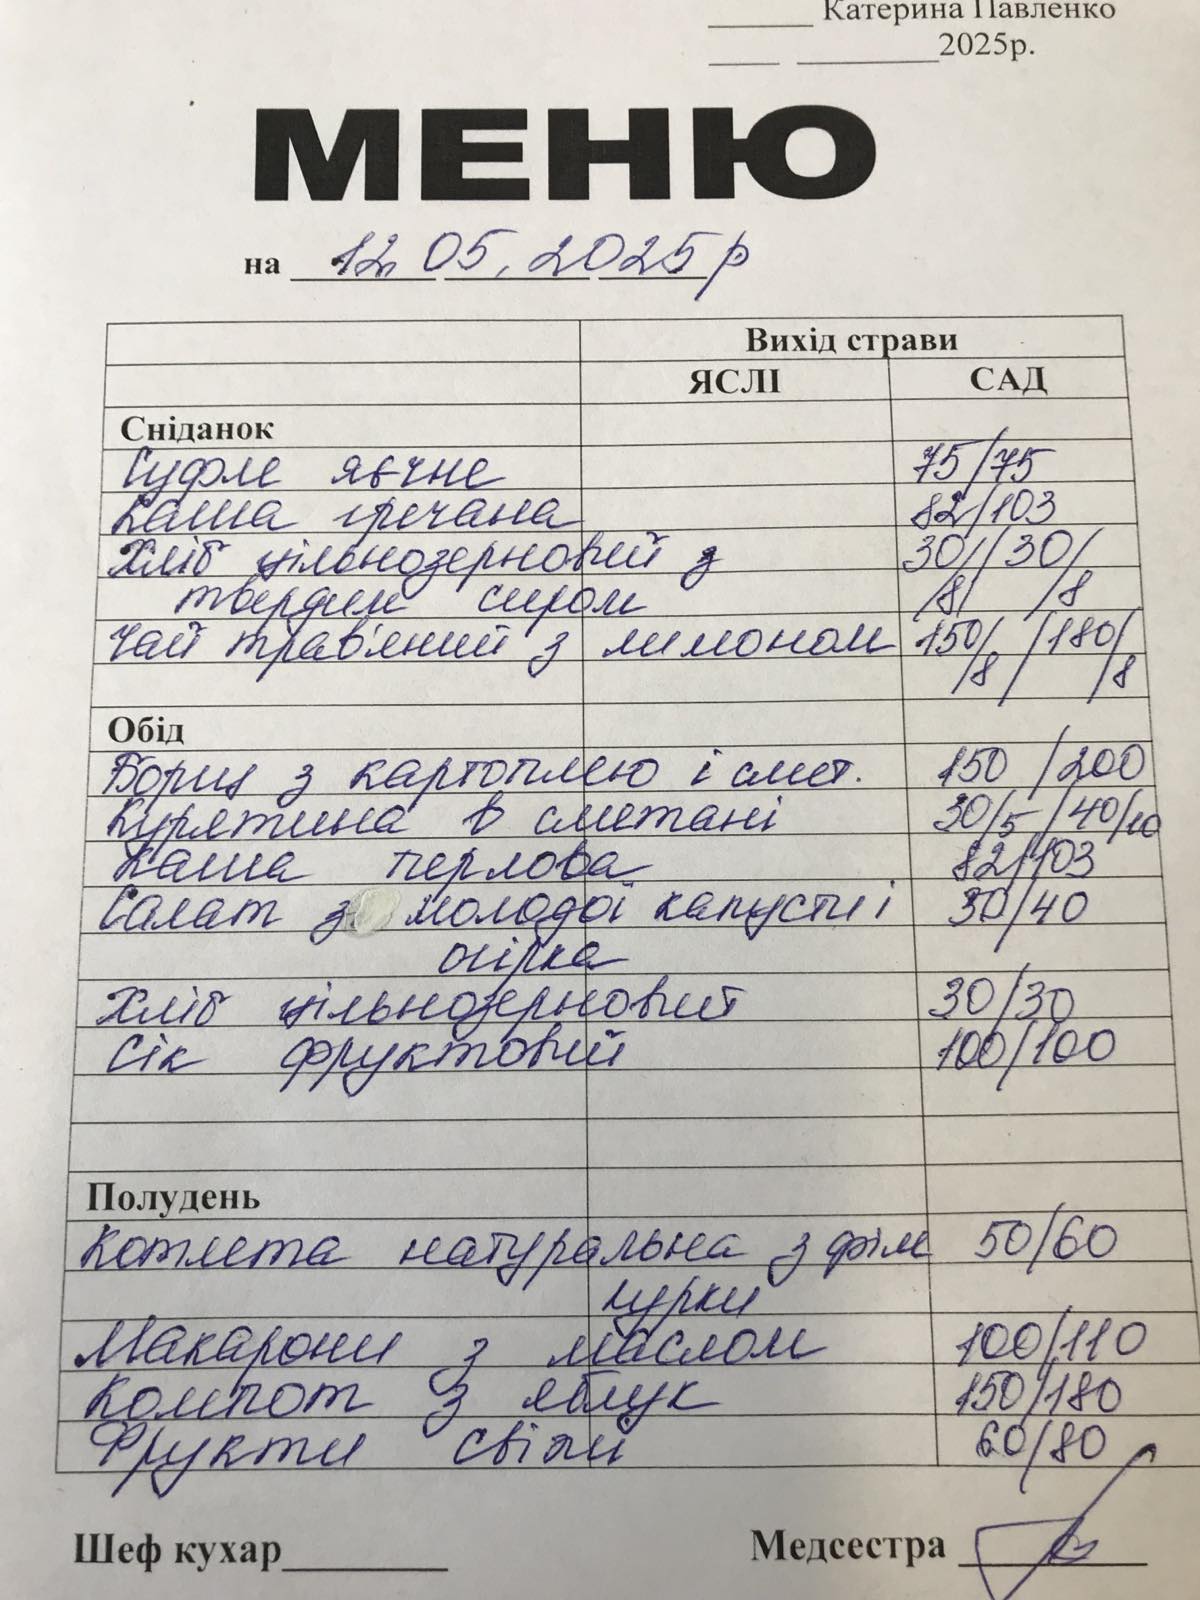 ______ Катерина Павленко
____ ________2025р.
МЕНЮ
на 12. 05. 2025 р
Вихід страви
ЯСЛІ САД
Сніданок
Суфле яєчне 75/75
Каша гречана 82/103
Хліб цільнозерновий з 30/ /30/
твердим сиром /8/ /8
Чай трав'яний з лимоном 150/ /180/
/8 / /8
Обід
Борщ з картоплею і смет. 150 /200
Курятина в сметані 30/5 /40/10
Каша перлова 82/103
Салат з молодої капусти і 30/40
огірка
Хліб цільнозерновий 30/30
Сік фруктовий 100/100
Полудень
Котлета натуральна з філе 50/60
курки
Макарони з маслом 100/110
Компот з яблук 150/180
Фрукти свіжі 60/80
Шеф кухар________ Медсестра ________